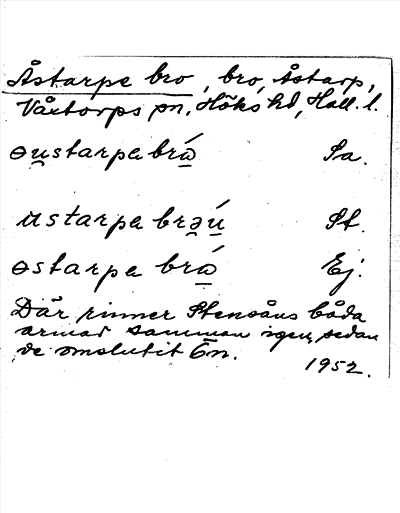 Åstarpe bro, bro, Åstarp,
Våxtorps sn, Höks hd, Hall. l.
ɵu̯starpa brá̱ Sa.
ustarpa brə̯ú̱ St.
ɵstarpa brá̱ Ej.
Där rinner Stensåns båda
armar samman igen, sedan
de omslutit Ön.
1952.